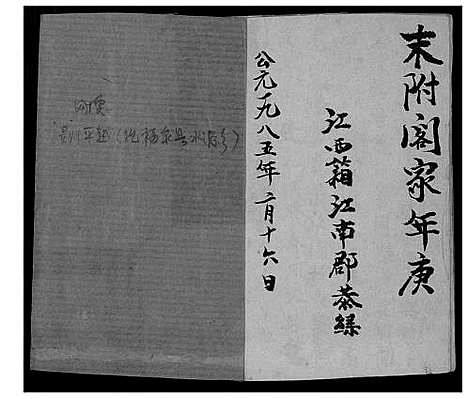 末附阁家年庚
江西籍江南郡恭录
公元一九八五年二月十六日
平越（